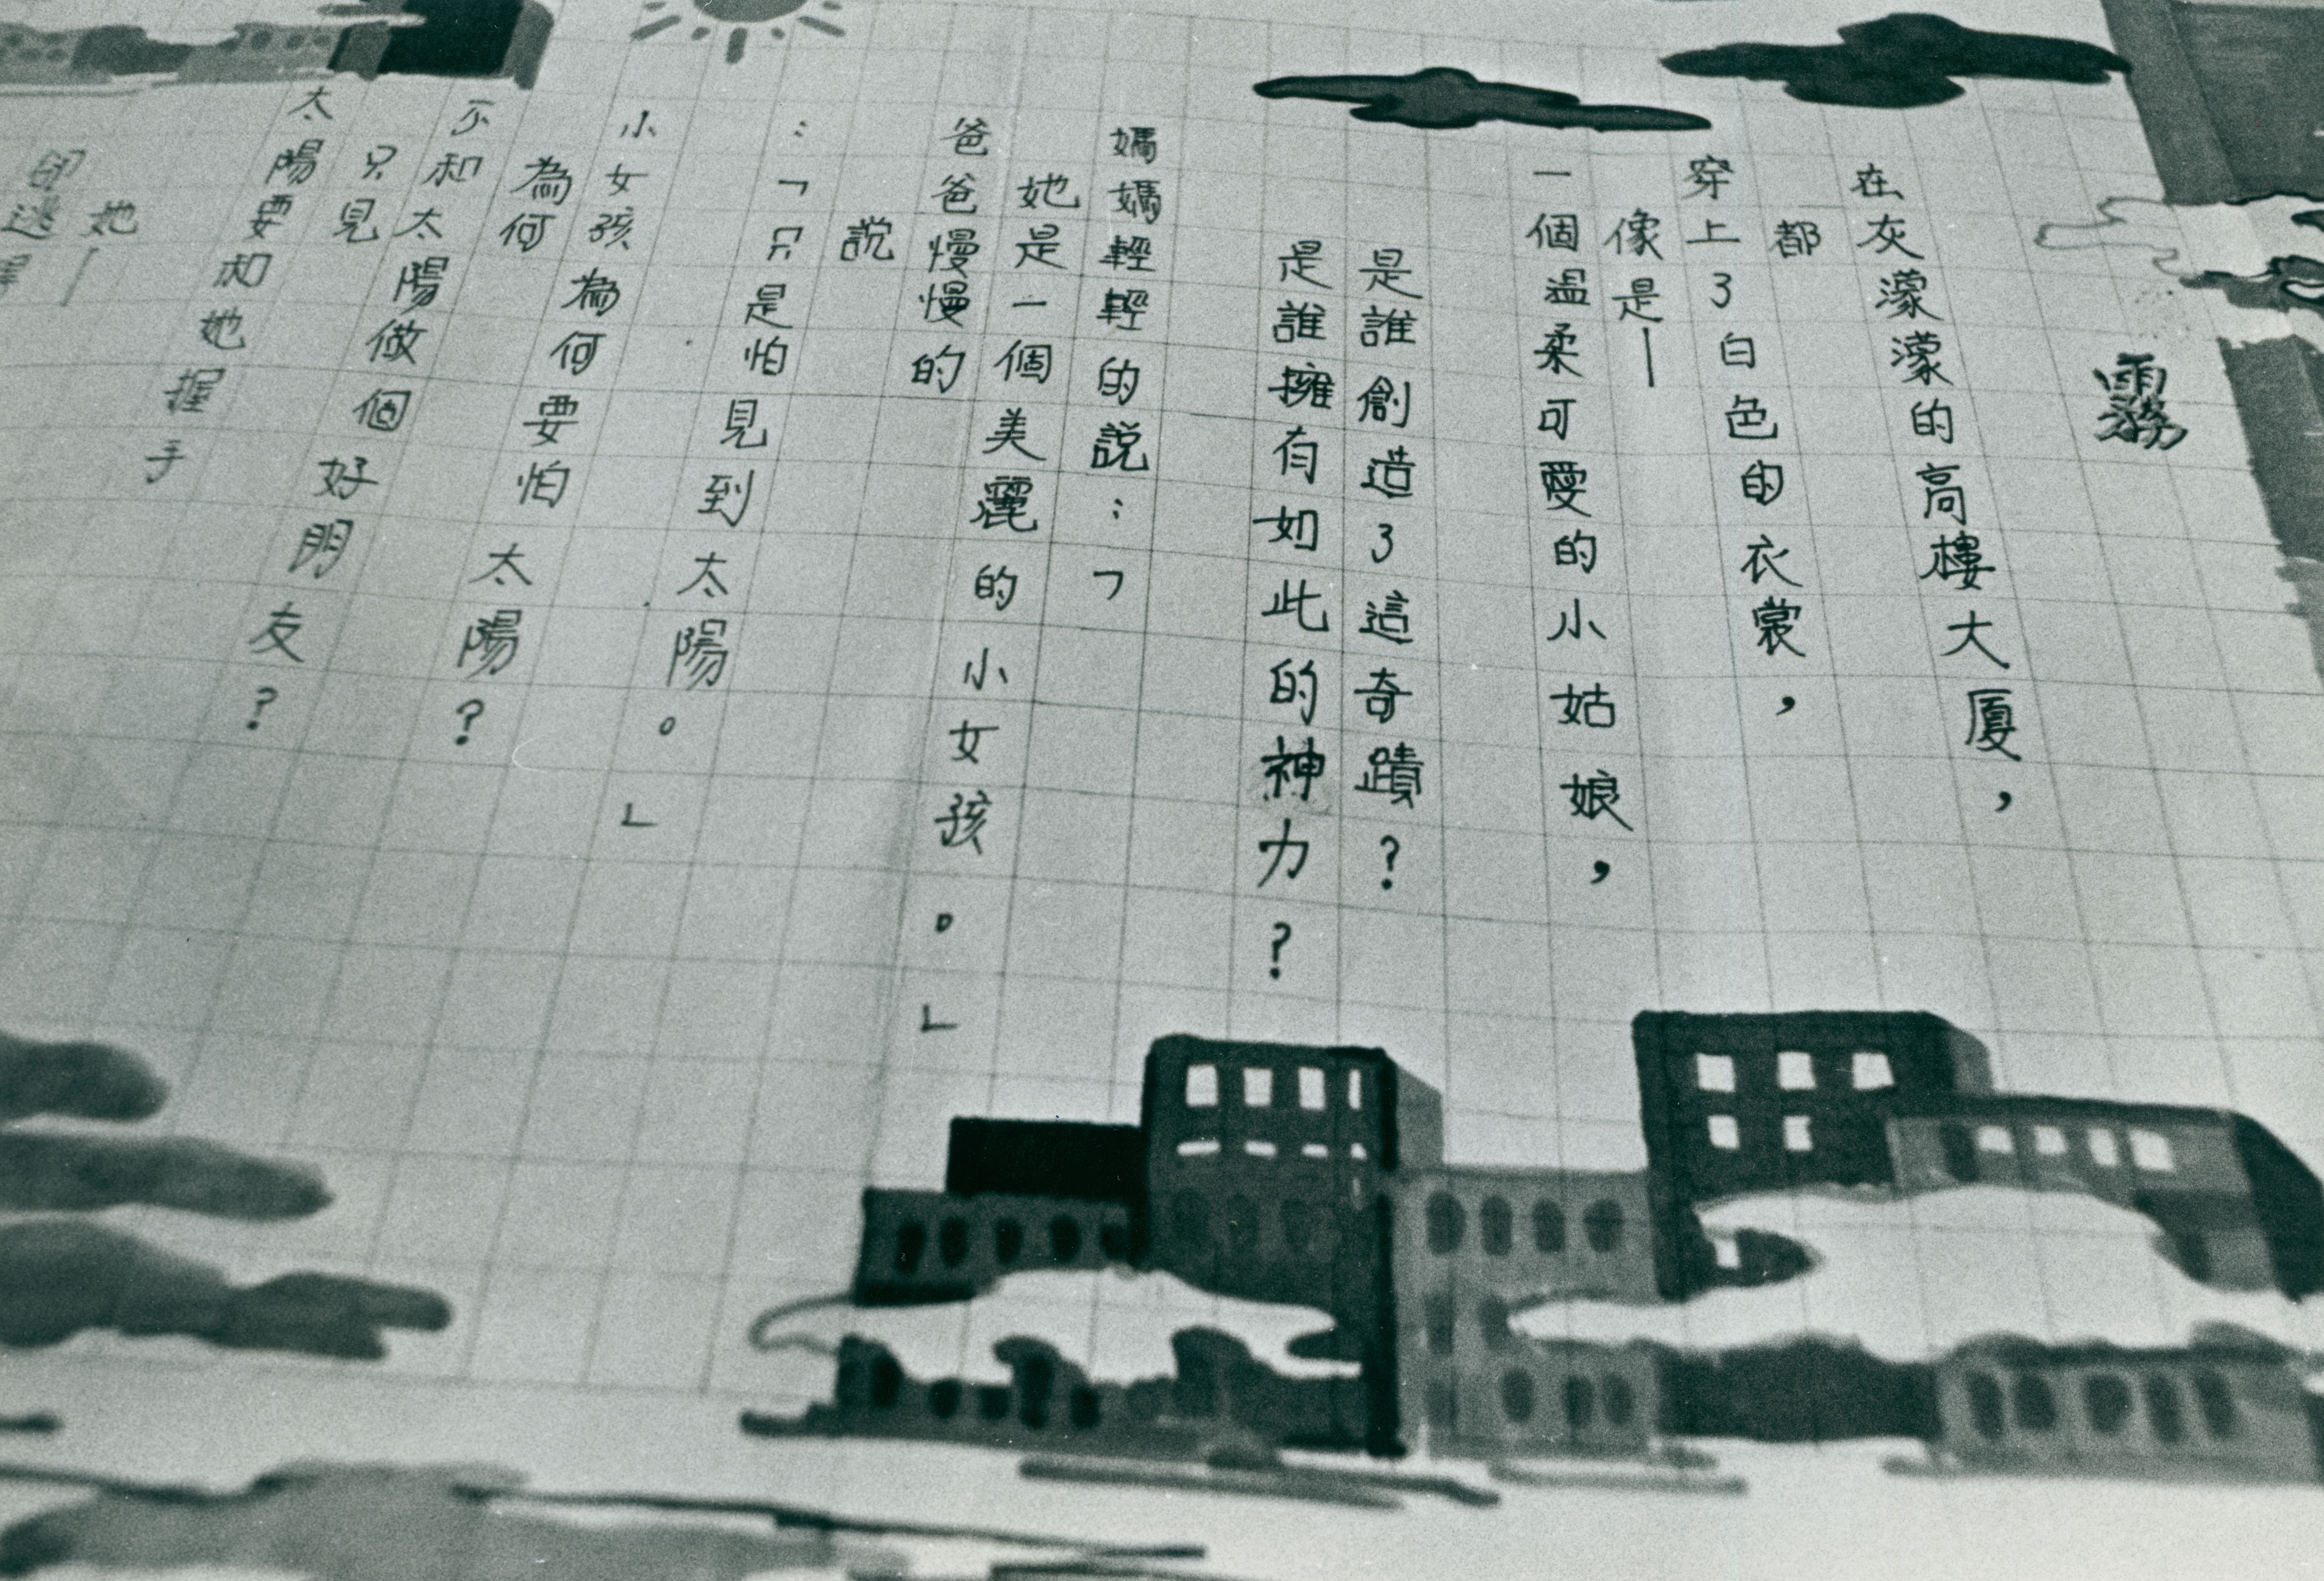 霧
在灰濛濛的高樓大厦，
都
穿上了白色的衣裳，
像是—
一個温柔可愛的小姑娘，
是誰創造了這奇蹟？
是誰擁有如此的神力？
媽媽輕輕的說：「
她是一個美麗的小女孩。」
爸爸慢慢的
說
：「只是怕見到太陽。」
小女孩為何要怕太陽？
為何
不和太陽做個好朋友？
只見
太陽要和她握手
她—